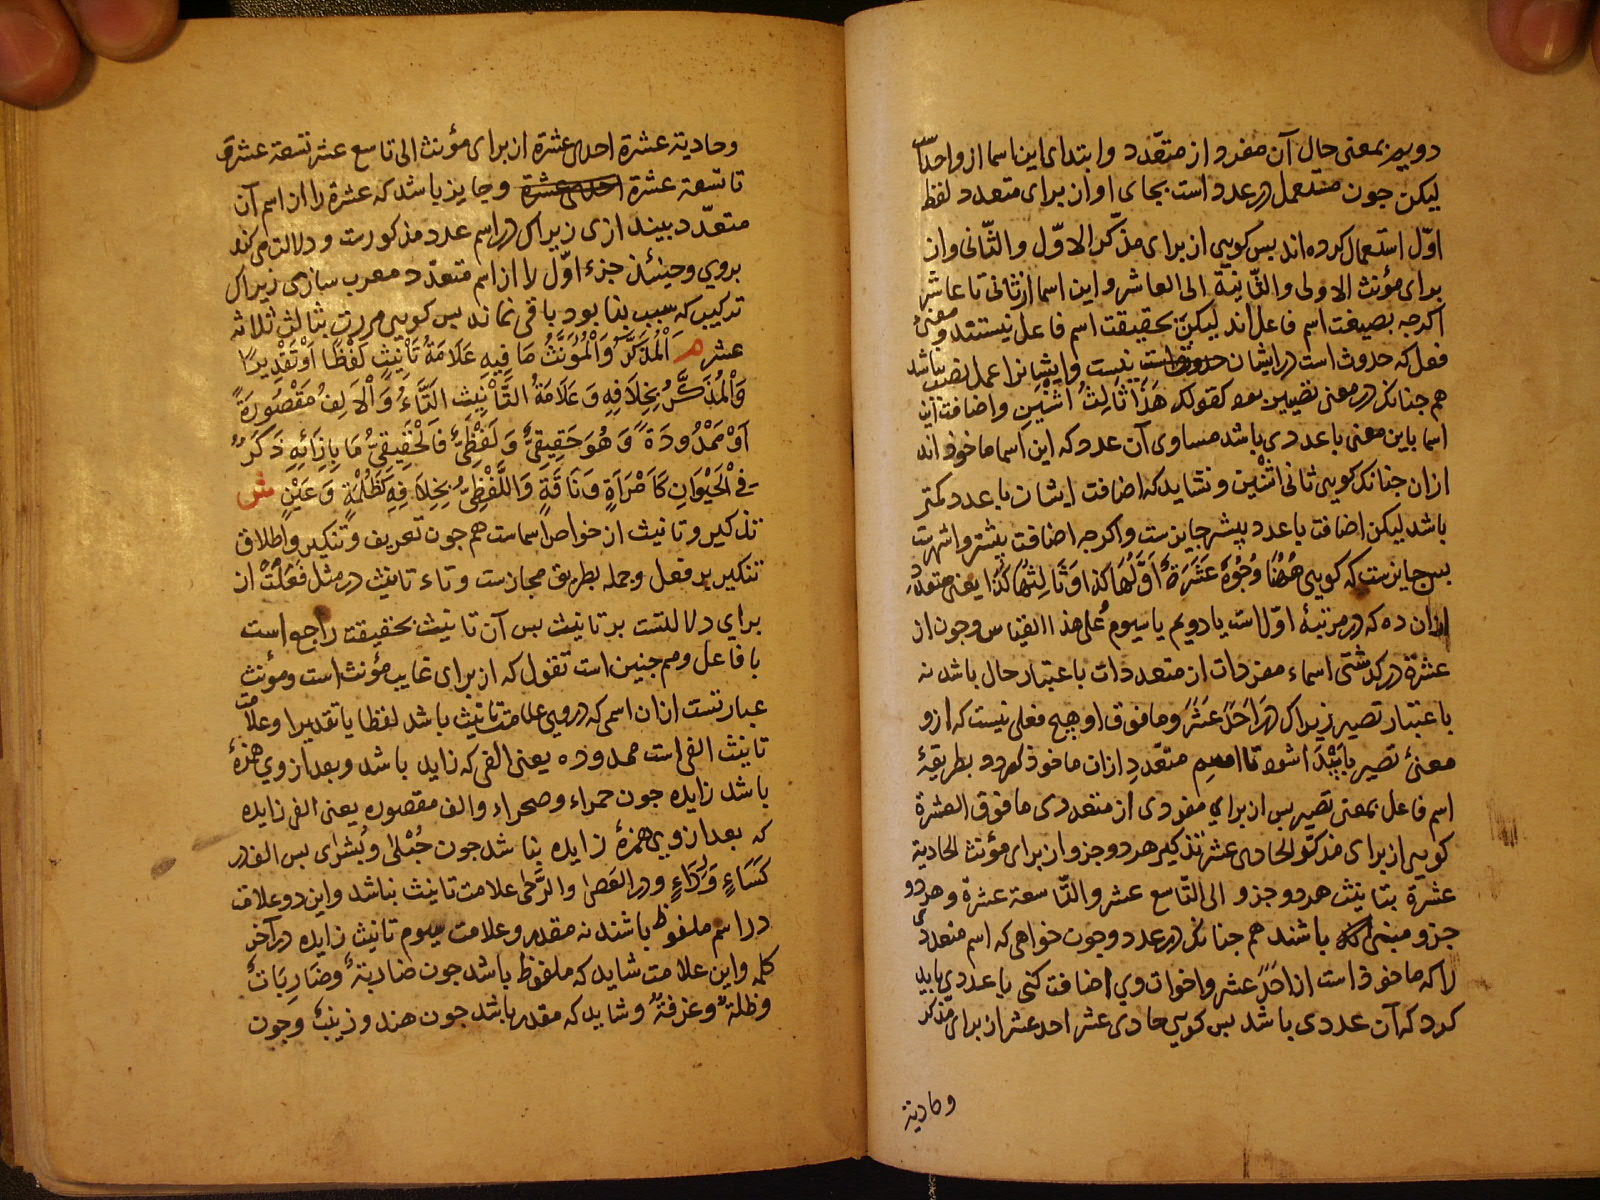 دوییم بمعنی حال آن مفرد از متعّدد و ابتدای این اسما از واحداست
لیکن جون مستعمل در عدد است بجای او از برای متعدد لفظ
اوّل استعمال کرده اند بس کویی از برای مذکّر الاوّل والثّانی و از
برای مؤنث الاولی والثّانیة الی العاشر و این اسما از ثانی تا عاشر
اکرجه بصیغت اسم فاعل اند لیکن بحقیقت اسم فاعل نیستند و معنیٔ
فعل که حدوث است در ایشان نیست و ایشانرا عمل نصب نباشد
هم جنانک در معنی تصییر بود کقولک هَذَا ثَالِثُ اثْنَینِ و اضافت این
اسما باین معنی باعددی باشد مساوی آن عدد که این اسما ماخوذ اند
ازان جنانک کویی ثانی اثْنَین و نشاید که اضافت ایشان باعدد کمتر
باشد لیکن اضافت باعدد بیشتر جایزست و اکرجه اضافت بیشتر و اشهرست
بس جایزست که کویی هُهُنَا وُجُوهٌ عَشَرَةٌ اَوَّلُهَا کذا وَثَالِثُهَا کَذَا یعنی متعدد
ازان ده که در مرتبهٔ اوّل است یا دویم یا سیوم عُلی هذا القیاس وجون از
عشرة درکذشتی اسماء مفردات از متعددات باعتبار حال باشد نه
باعتبار تصییر زیراک در اَحَدَ عَشَرَ و مافوق او هیچ فعلی نیست که ازو
معنیٔ تصییر متعّددِ ازان ماخوذ کردد بطریقهٔ
اسم فاعل بمعنی تصییر بس از برای مفردی از متعددی مافوق العشرة
کویی از برای مذکّر الحادی عشر بتذکیر هر دو جزو از برای مؤنث الحادیة
عشرة بتانیث هر دو جزو الی التّاسع عشر والتّاسعة عشرة و هر دو
جزو مبنی باشند هم جنانک در عدد وجون خواهی که اسم متعددی
را که ماخوذ است از اَحَدَ عشر و اخوات وی اضافت کنی باعددی باید
کرد که آن عددی باشد بس کویی حادی عشر احد عشر از برای مذکر
وحادیة
وحادیة عشرة احدی عشرة از برای مؤنث الی تاسع عشر تسعة عشرة
تاسعة عشرة احدی عشرة و جایز باشد که عشرة را از اسم آن
متعدّد بیندازی زیراک در اسم عدد مذکورست و دلالت می کند
بروی و حینئذ جزء اوّل را از اسم متعدّد معرب سازی زیراک
ترکیب که سبب بنا بود باقی نماند بس کویی مررت بثالث ثلاثة
عشر م اَلْمُذَکَّرُ وَالْمُؤَنَّثُ مَا فِیهِ عَلَامَةُ تَأْنِیثٍ لَفْظًا اَوْ تَقْدِیرًا
وَالْمُذَکَّرُ بِخِلَافِهِ وَعَلَامَةُ التَّأْنِیثِ التَّاءُ وَالْاَلِفُ مَقْصُورَةً
اَوْ مَمْدُودَةً وَهُوَ حَقِیقِیٌّ وَلَفْظِیٌّ فَالْحَقِیقِیُّ مَا بِازَائِهِ ذَکَرٌ
فِی الْحَیْوَانِ کَامْرَاَةٍ وَنَاقَةٍ وَاللَّفْظِیُّ بِخِلَافِهِ کَظُلْمَةٍ وَعَیْنٍ ش
تذکیر و تانیث از خواص اسماست هم جون تعریف و تنکیر و اطلاق
تنکیر بر فعل و جمله بطریق مجازست و تاء تانیث در مثل فَعَلَتْ از
برای دلالتست بر تانیث بس آن تانیث بحقیقت راجع است
با فاعل و هم جنین است تقول که از برای غایب مؤنث است و مؤنث
عبارتست ازان اسمی که در وی علامت تانیث باشد لفظا یا تقدیرا و علامت
تانیث الفی است ممدوده یعنی الفی که زاید باشد و بعد از وی همزهٔ
باشد زایده جون حمراء و صحراء و الف مقصوره یعنی الفی زایده
که بعد از وی همزهٔ زایده نباشد جون حُبْلی و بُشرای بس الف در
کَسَاءٍ وَرِدَاءٍ و در العَصَا والرَّحی علامت تانیث نباشد و این دو علامت
در اسم ملفوظ باشند نه مقدر و علامت سیوم تانیث زایده در آخر
کلمه و این علامت شاید که ملفوظ باشد جون ضاربةٌ وضَارِبَاتٌ
وظلمةٌ وغرفةٌ و شاید که مقدر باشد جون هند و زینبٔ وجون